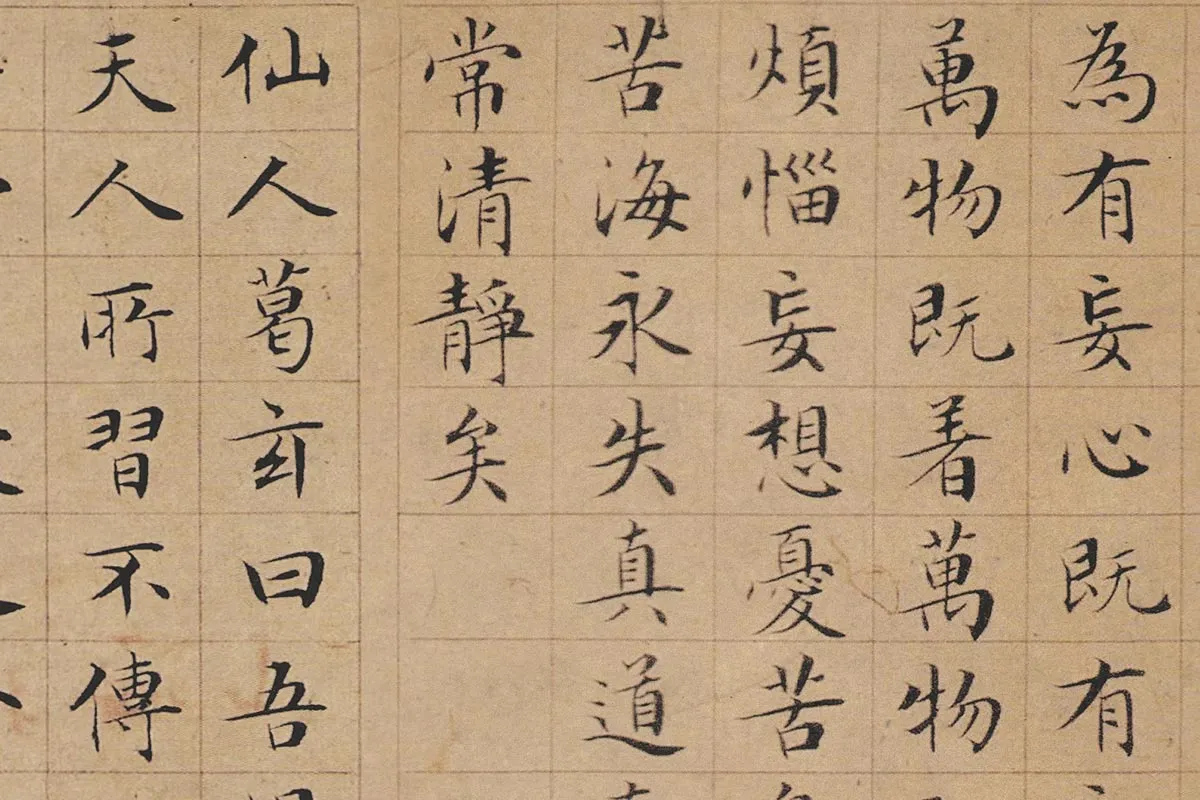 為有妄心既有
萬物既着萬物
煩惱妄想憂苦
苦海永失真道
常清靜矣
仙人葛玄曰吾
天人所習不傳